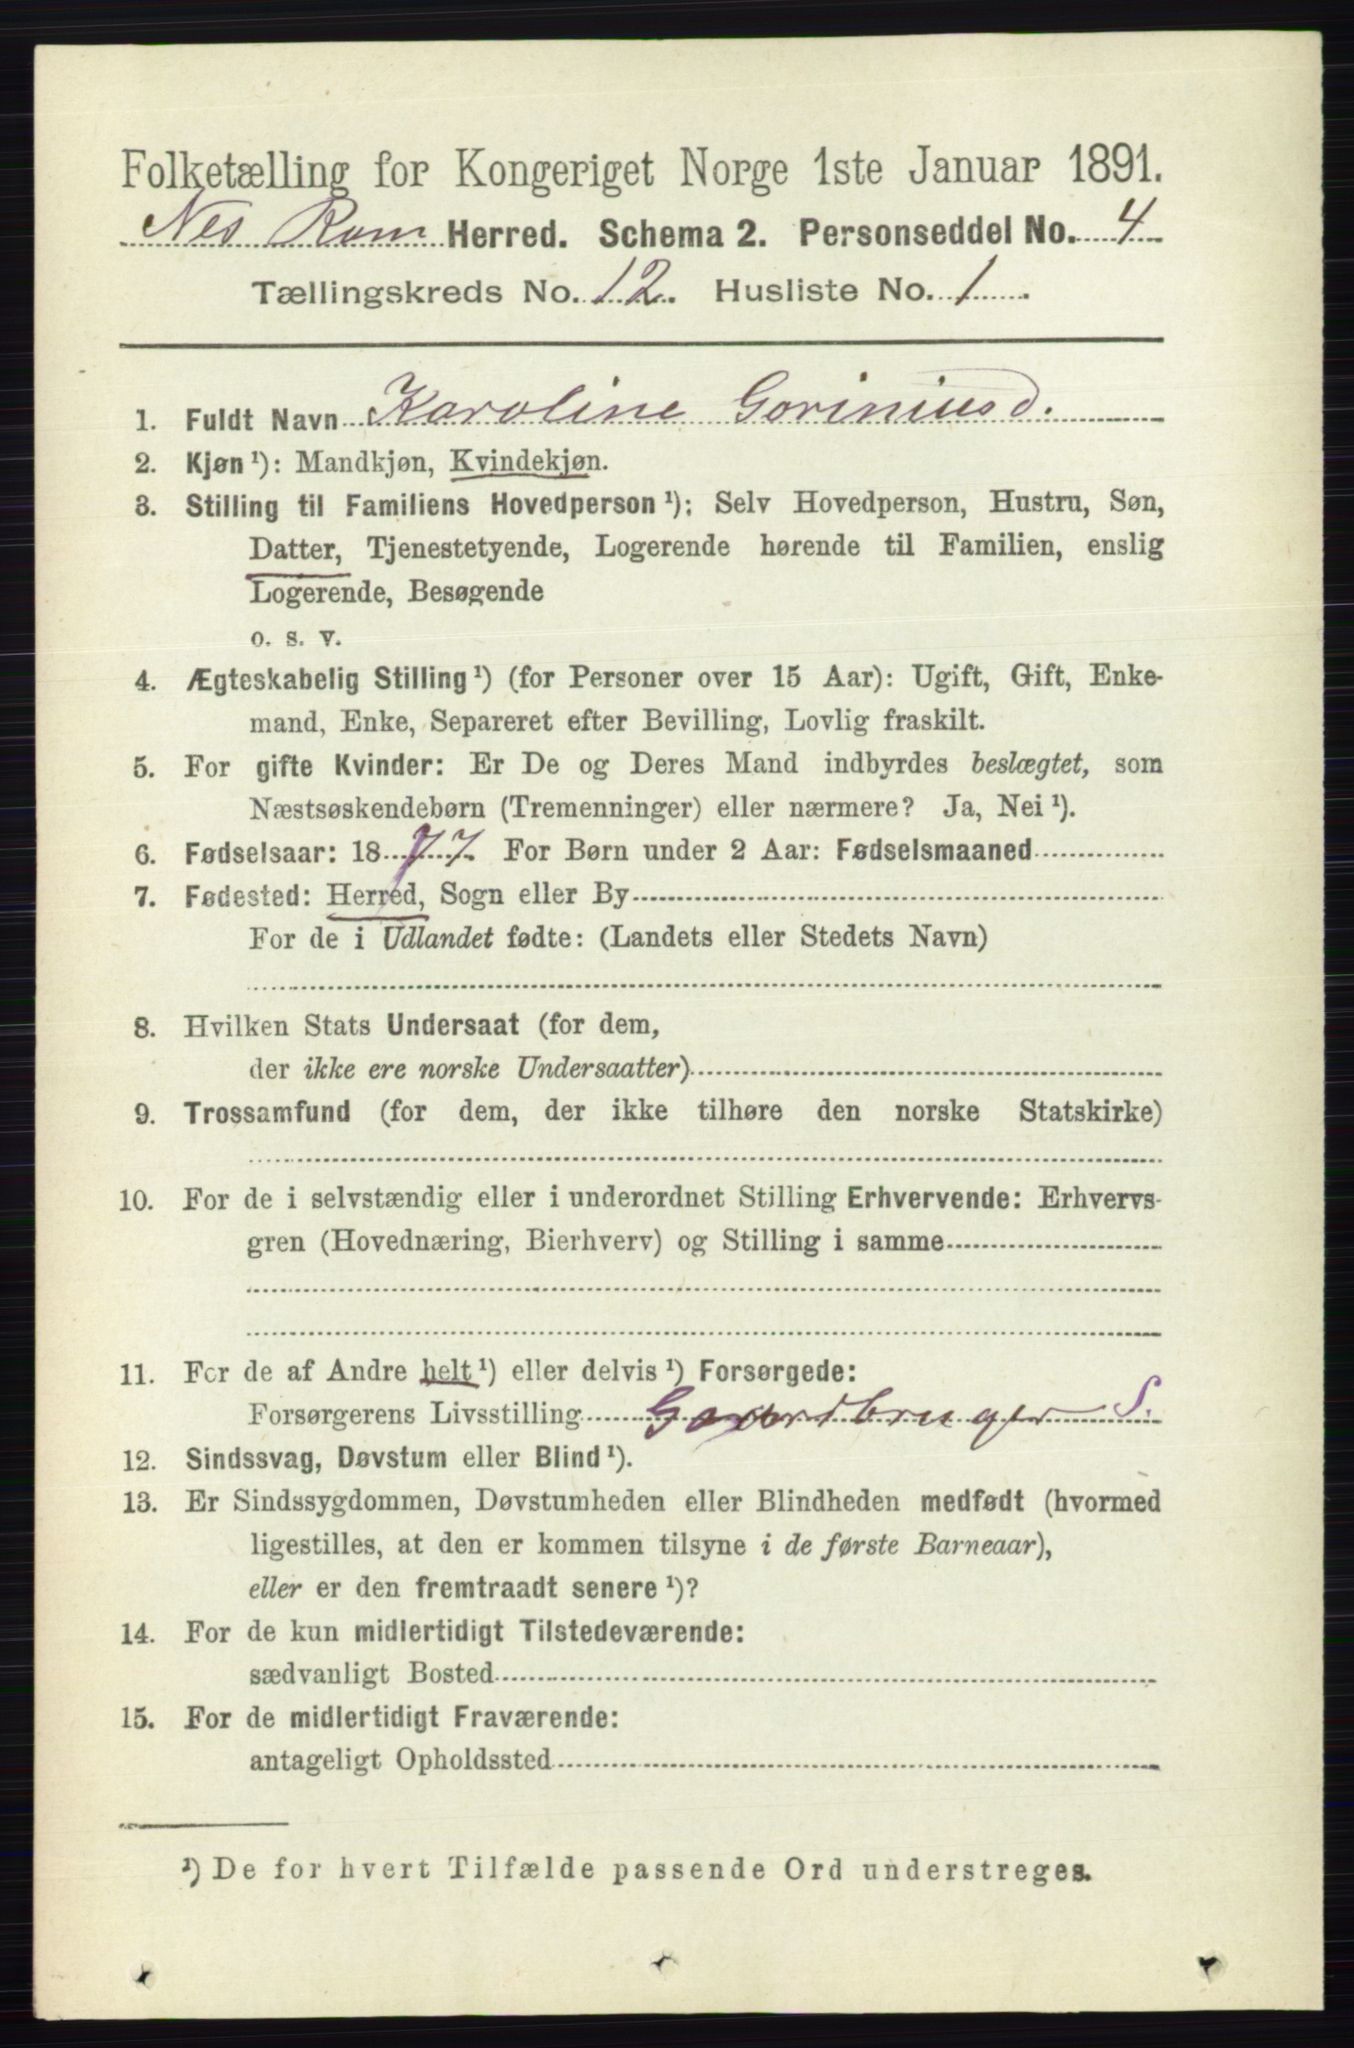 Folketælling for Kongeriget Norge 1ste Januar 1891.
Nes Rom Herred. Schema 2. Personseddel No. 4
Tællingskreds No. 12. Husliste No. 1.
1. Fuldt Navn Karoline Goriniusd.
2. Kjøn ¹): Mandkjøn, Kvindekjøn.
3. Stilling til Familiens Hovedperson ¹): Selv Hovedperson, Hustru, Søn,
Datter, Tjenestetyende, Logerende hørende til Familien, enslig
Logerende, Besøgende
o. s. v.
4. Ægteskabelig Stilling ¹) (for Personer over 15 Aar): Ugift, Gift, Enke-
mand, Enke, Separeret efter Bevilling, Lovlig fraskilt.
5. For gifte Kvinder: Er De og Deres Mand indbyrdes beslægtet, som
Næstsøskendebørn (Tremenninger) eller nærmere? Ja, Nei ¹).
6. Fødselsaar: 1877. For Børn under 2 Aar: Fødselsmaaned
7. Fødested: Herred, Sogn eller By
For de i Udlandet fødte: (Landets eller Stedets Navn)
8. Hvilken Stats Undersaat (for dem,
der ikke ere norske Undersaatter)
9. Trossamfund (for dem, der ikke tilhøre den norske Statskirke)
10. For de i selvstændig eller i underordnet Stilling Erhvervende: Erhvervs-
gren (Hovednæring, Bierhverv) og Stilling i samme
11. For de af Andre helt ¹) eller delvis ¹) Forsørgede:
Forsørgerens Livsstilling Gaardbruger S.
12. Sindssvag, Døvstum eller Blind ¹).
13. Er Sindssygdommen, Døvstumheden eller Blindheden medfødt (hvormed
ligestilles, at den er kommen tilsyne i de første Barneaar),
eller er den fremtraadt senere ¹)?
14. For de kun midlertidigt Tilstedeværende:
sædvanligt Bosted
15. For de midlertidigt Fraværende:
antageligt Opholdssted
¹) De for hvert Tilfælde passende Ord understreges.